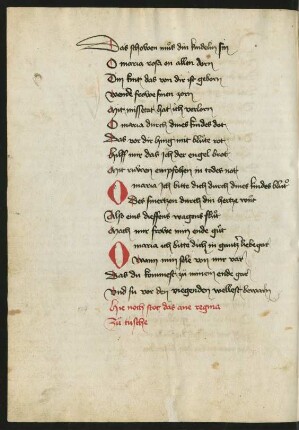 Das schowen mus din kindelin sin
O maria rosa on allen dorn
Din kint das von dir ist geborn
Wende frowe sinen zorn
Mit missetat hab ich verlorn
O maria durch dines kindes dot
Das vor dir hing mit blůte rot
Hilff mir das ich der engel brot
Mit ruwen empfohe in todes not
O maria ich bitte dich durch dines kindes blůt
Des smertzen durch din hertze wůt
Also eins wages flůt
Mach mir frowe min ende gůt
O maria ich bitte dich in gantzer liebe gar
Wann min sele von mir var
Das du kommest zu minem ende gar
Und su vor den viegenden wellest bewarn
Hie noch stot das ave regina
Zů tüsche